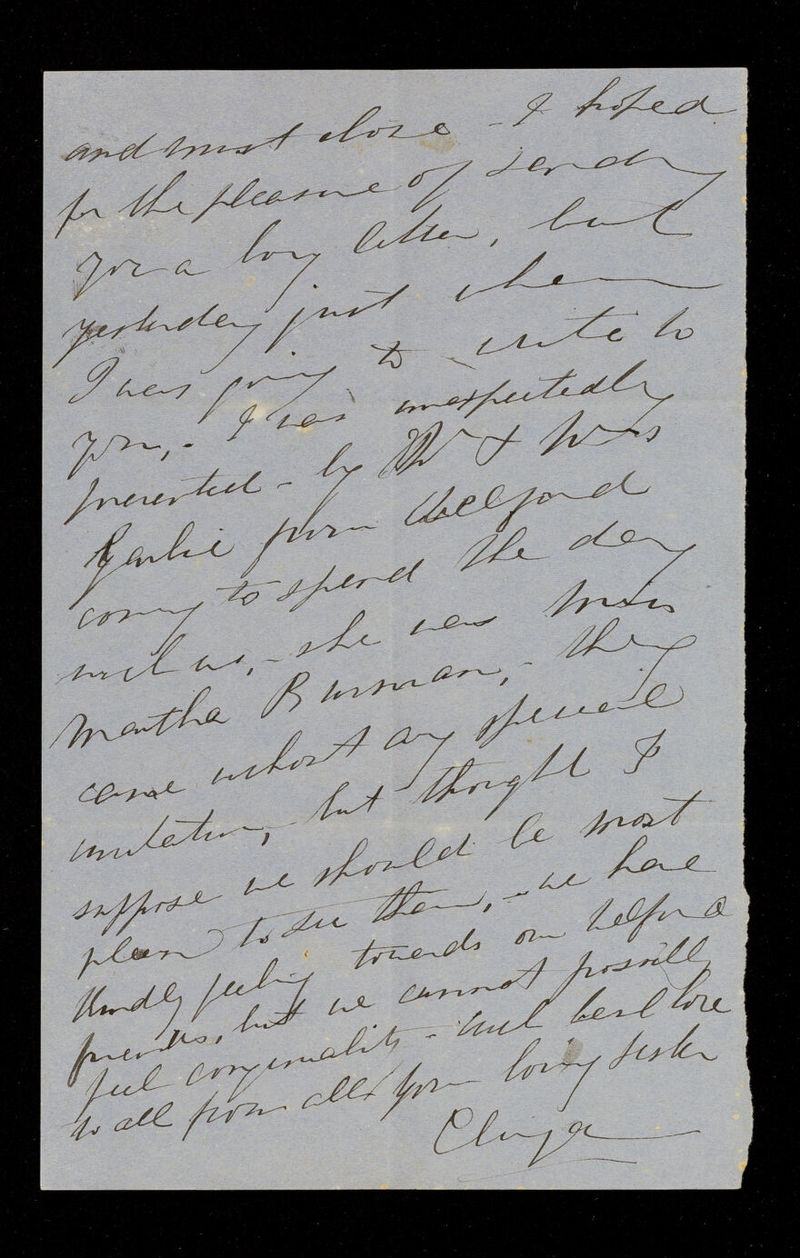 and must close - I hoped
for the pleasure of sending
you a long letter, but
yesterday just when
I was going to write to
you, - I was unexpectedly
prevented - by Mr & Mrs
from Welford
coming to spend the day
with us, - she was Miss
Martha Burman, - they
came without any special
invitation, but thought I
suppose we should be most
pleased to see them, - we have
kindly feeling towards our Welford
friends, but we cannot possibly
feel congeniality - with best love
to all from all your loving sister
Eliza